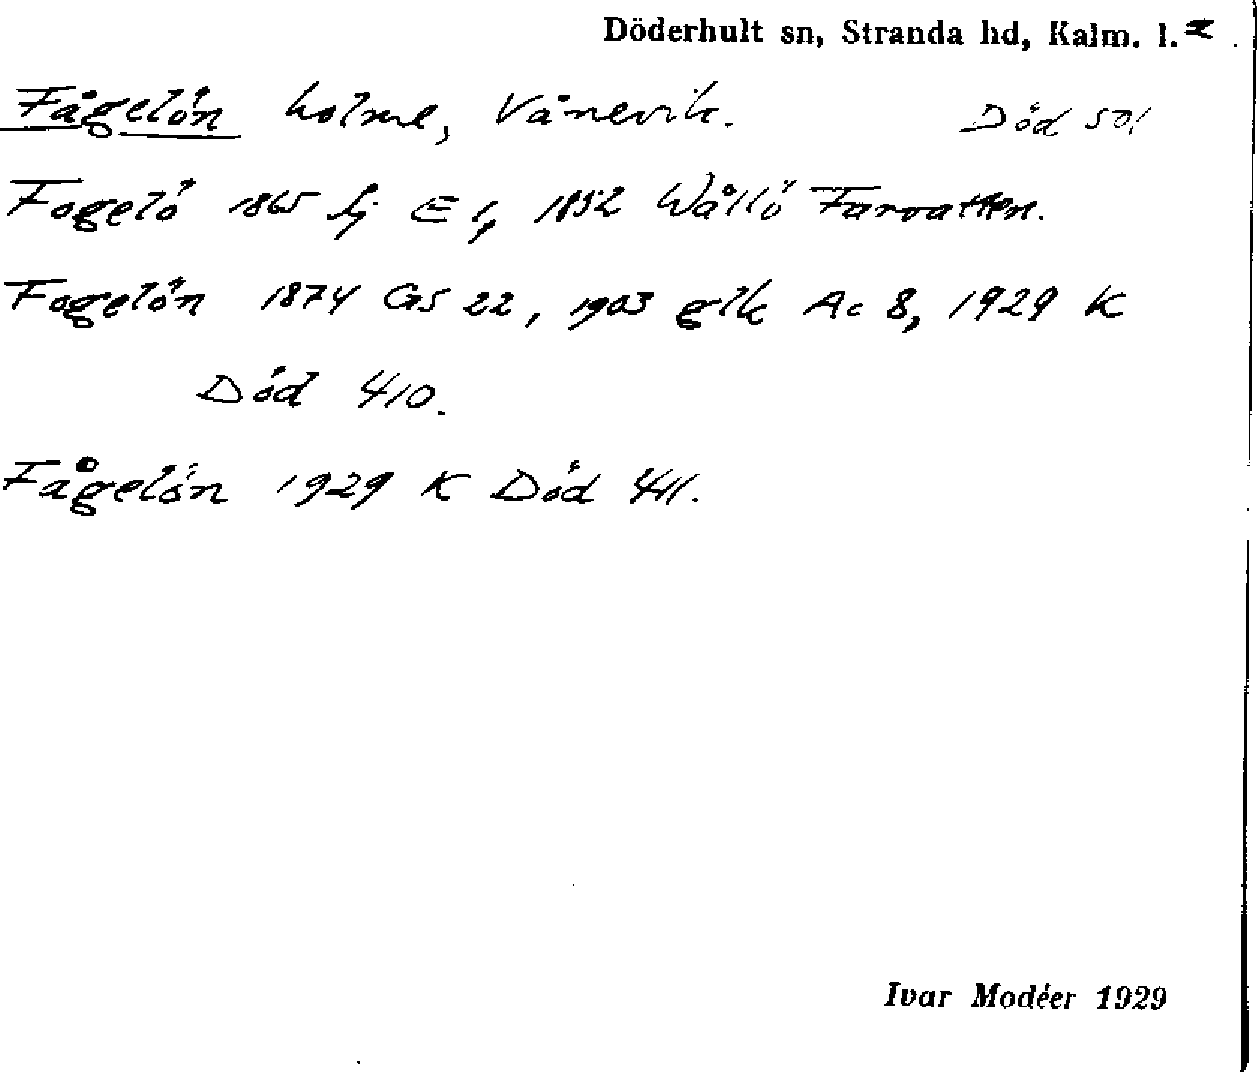 Döderhult sn, Stranda hd, Kalm. l.
Fågelön holme, Vånevik. Död 501
Fogelö 1865 Sj E 1, 1852 Wållö Farvatten.
Fogelön 1874 GS 22, 1903 glk Ac 8, 1929 K
Död 410.
Fågelön 1929 K Död 411.
Ivar Modéer 1929